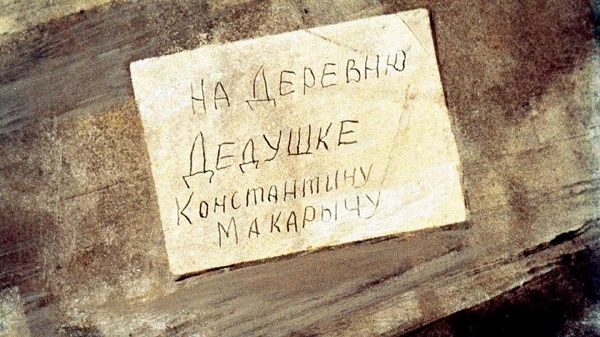 На Деревню
Дедушке
Константину
Макарычу